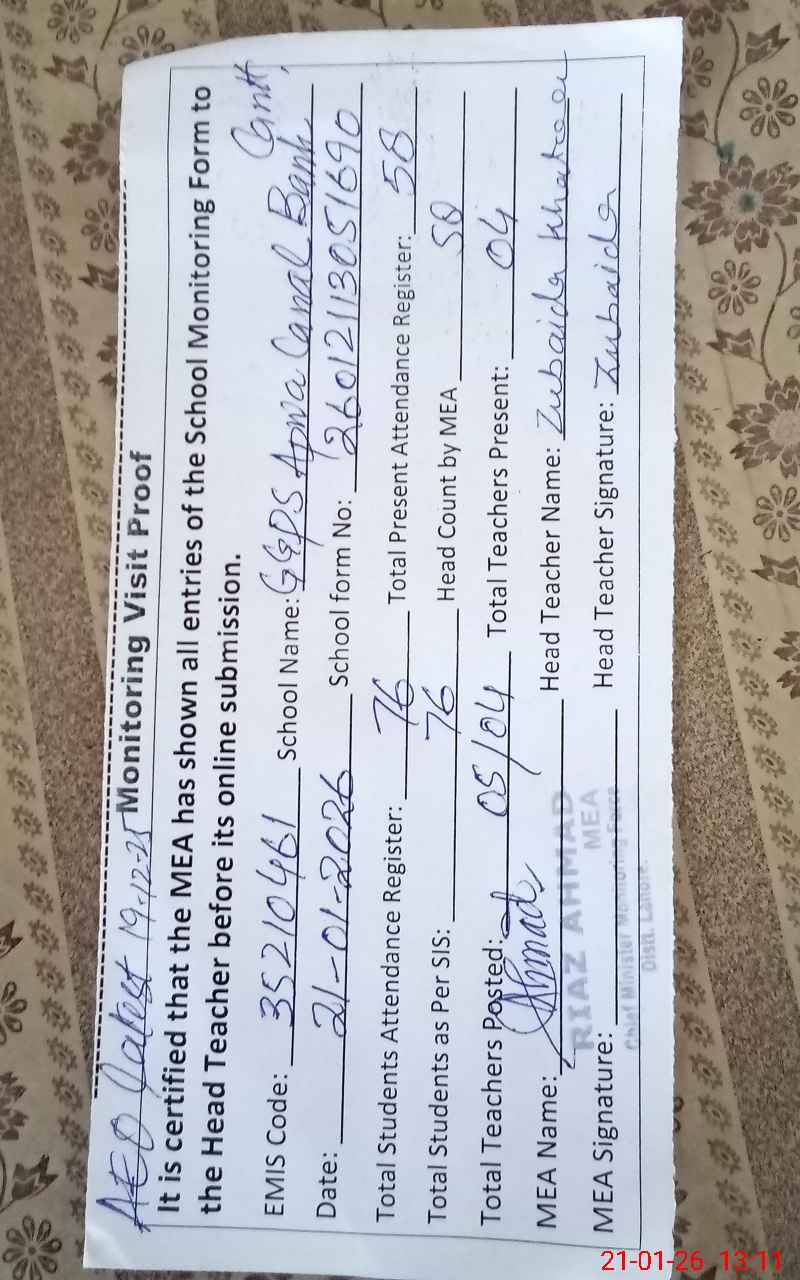 AEO Latest 19-12-25 Monitoring Visit Proof
It is certified that the MEA has shown all entries of the School Monitoring Form to
the Head Teacher before its online submission.
EMIS Code: 35210461 School Name: GGPS Apwa Canal Bank Cantt,
Date: 21-01-2026 School form No: 260121130051690
Total Students Attendance Register: 76 Total Present Attendance Register: 58
Total Students as Per SIS: 76 Head Count by MEA 58
Total Teachers Posted: 05/04 Total Teachers Present: 04
MEA Name: Ahmad Head Teacher Name: Zubaida Khatoon
RIAZ AHMAD
MEA
MEA Signature: Head Teacher Signature: Zubaida
Chief Minister Monitoring Force
Distt. Lahore.
21-01-26 13:11